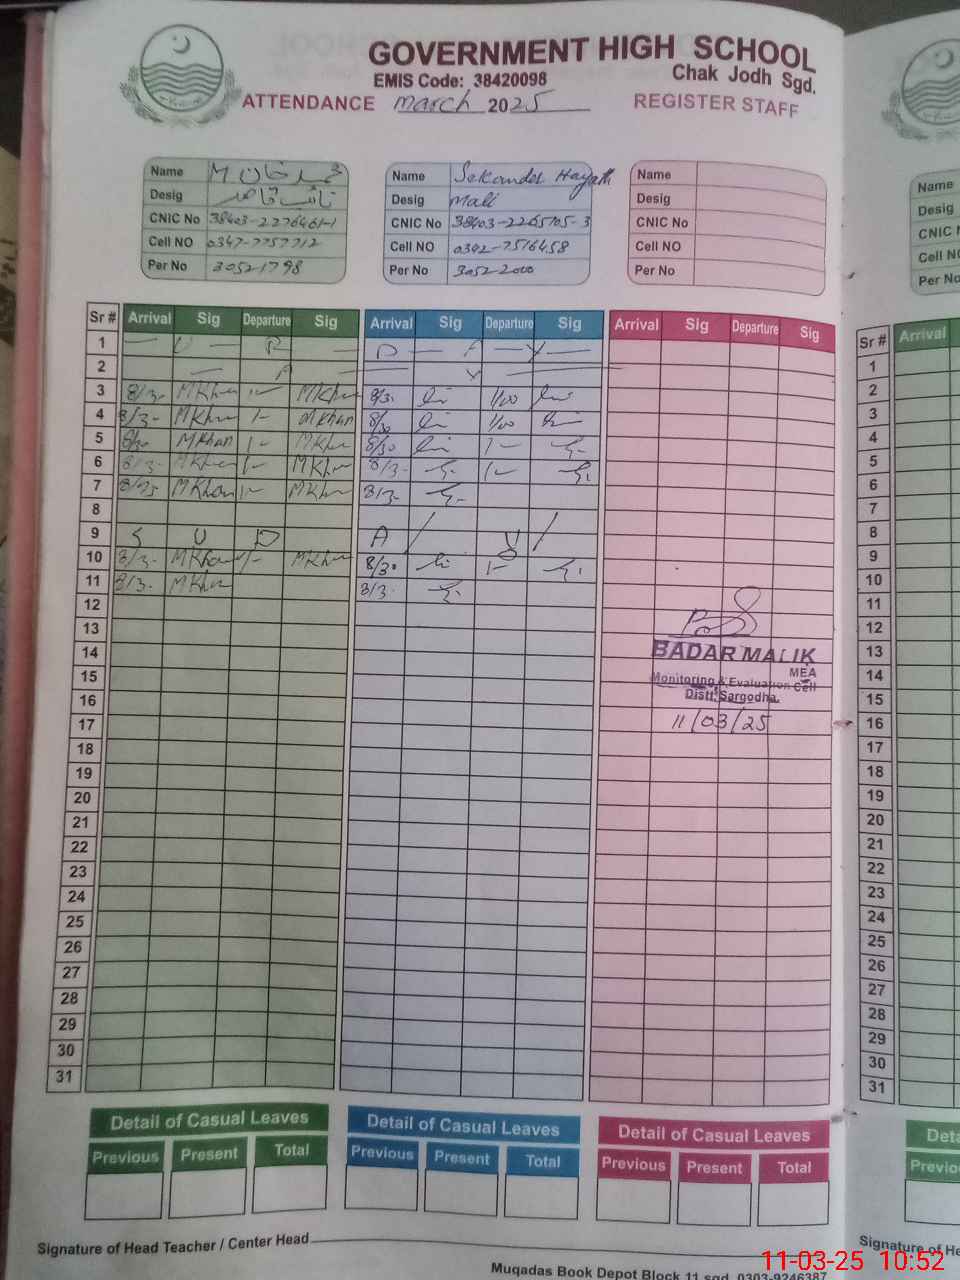 GOVERNMENT HIGH SCHOOL
EMIS Code: 38420098 Chak Jodh Sgd.
ATTENDANCE March 2025 REGISTER STAFF
Name M محمد خان Name Sekander Hayath Name
Desig نائب قاصد Desig Mali Desig
CNIC No 38403-2276461-1 CNIC No 38403-2265705-3 CNIC No
Cell NO 0347-7757712 Cell NO 0342-7516458 Cell NO
Per No 30521798 Per No 30522000 Per No
Sr # Arrival Sig Departure Sig Arrival Sig Departure Sig Arrival Sig Departure Sig
1
2
3 8/3- MKhan 1- MKhan 8/3- 1/00
4 8/3- MKhan 1- MKhan 8/30 1/00
5 8/30 MKhan 1- MKhan 8/30 1-
6 8/3- MKhan 1- MKhan 8/3- 1-
7 8/3- MKhan 1- MKhan 8/3-
8
9 S U D A Y
10 8/3- MKhan 1- MKhan 8/30 1-
11 8/3- MKhan 8/3-
12
13
14
15
16
17
18
19
20
21
22
23
24
25
26
27
28
29
30
31
BADAR MALIK
MEA
Monitoring & Evaluation Cell
Distt. Sargodha.
11/03/25
Detail of Casual Leaves Detail of Casual Leaves Detail of Casual Leaves
Previous Present Total Previous Present Total Previous Present Total
Signature of Head Teacher / Center Head
Muqadas Book Depot Block 11 sgd. 0303-9246387
Name
Desig
CNIC N
Cell NO
Per No
Sr # Arrival
1
2
3
4
5
6
7
8
9
10
11
12
13
14
15
16
17
18
19
20
21
22
23
24
25
26
27
28
29
30
31
Deta
Previo
Signature of He
11-03-25 10:52